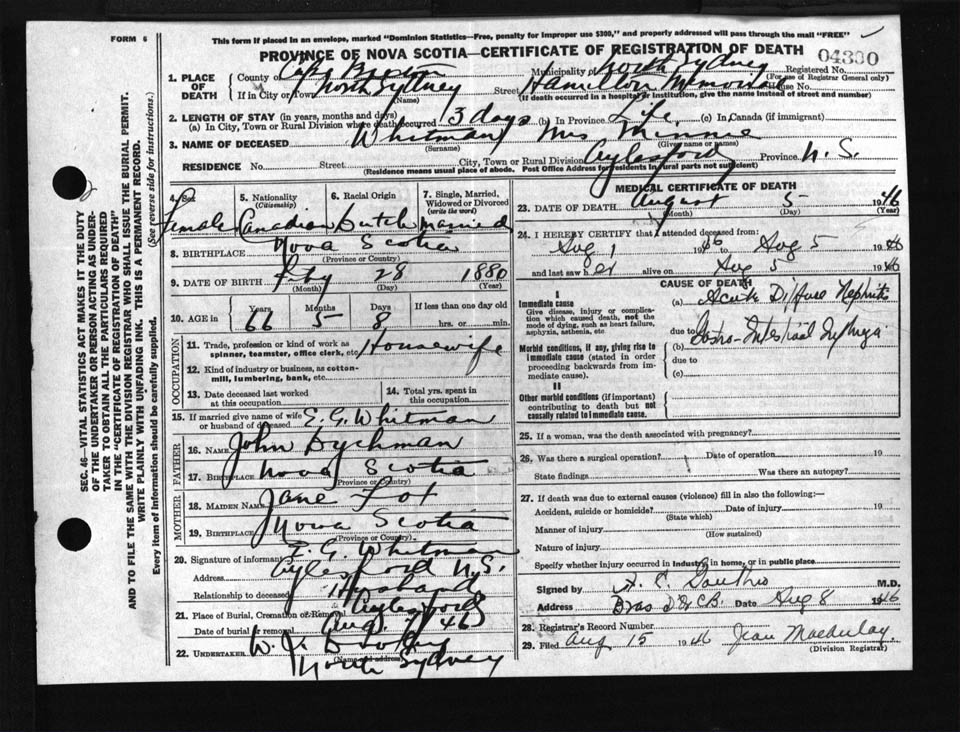 FORM 6
This form if placed in an envelope, marked "Dominion Statistics—Free, penalty for improper use $300," and properly addressed will pass through the mail "FREE"
PROVINCE OF NOVA SCOTIA—CERTIFICATE OF REGISTRATION OF DEATH
04300
Registered No.
(For use of Registrar General only)
1. PLACE OF DEATH
County of Cape Breton Municipality of North Sydney
If in City or Town North Sydney Street Hamilton Memorial House No.
(Name) (If death occurred in a hospital or institution, give the name instead of street and number)
2. LENGTH OF STAY (in years, months and days)
(a) In City, Town or Rural Division where death occurred 13 days (b) In Province Life (c) In Canada (if immigrant)
3. NAME OF DECEASED Whitman Mrs Minnie
(Surname) (Given name or names)
RESIDENCE No. Street City, Town or Rural Division Aylesford Province N. S.
(Residence means usual place of abode. Post Office Address for residents in rural parts not sufficient)
4. Sex Female
5. Nationality (Citizenship) Canadian
6. Racial Origin Dutch
7. Single, Married, Widowed or Divorced (write the word) married
8. BIRTHPLACE Nova Scotia
(Province or Country)
9. DATE OF BIRTH 28 1880
(Month) (Day) (Year)
10. AGE in Years 66 Months 5 Days 8 If less than one day old hrs. or min.
OCCUPATION
11. Trade, profession or kind of work as spinner, teamster, office clerk, etc. Housewife
12. Kind of industry or business, as cotton-mill, lumbering, bank, etc.
13. Date deceased last worked at this occupation
14. Total yrs. spent in this occupation
15. If married give name of wife or husband of deceased E. G. Whitman
FATHER
16. Name John Dychman
17. Birthplace Nova Scotia
(Province or Country)
MOTHER
18. Maiden Name Jane
19. Birthplace Nova Scotia
(Province or Country)
20. Signature of informant E. G. Whitman
Address Aylesford N.S.
Relationship to deceased Husband
21. Place of Burial, Cremation or Removal Aylesford
Date of burial or removal Aug. 7/46
22. UNDERTAKER W. J.
(Name and address)
North Sydney
MEDICAL CERTIFICATE OF DEATH
23. DATE OF DEATH August 5 1946
(Month) (Day) (Year)
24. I HEREBY CERTIFY that I attended deceased from:
Aug 1 1946 to Aug 5 1946
and last saw her alive on Aug 5 1946
CAUSE OF DEATH
I
Immediate cause
Give disease, injury or complication which caused death, not the mode of dying, such as heart failure, asphyxia, asthenia, etc.
(a) Acute Diffuse Nephritis
due to
Morbid conditions, if any, giving rise to immediate cause (stated in order proceeding backwards from immediate cause).
(b) Gastro-Intestinal
due to
(c)
II
Other morbid conditions (if important) contributing to death but not causally related to immediate cause.
25. If a woman, was the death associated with pregnancy?
26. Was there a surgical operation? Date of operation 19
State findings Was there an autopsy?
27. If death was due to external causes (violence) fill in also the following:—
Accident, suicide or homicide? Date of injury 19
(State which)
Manner of injury
(How sustained)
Nature of injury
Specify whether injury occurred in industry, in home, or in public place
Signed by M.D.
Address Bras D'Or C.B. Date Aug 8 1946
28. Registrar's Record Number
29. Filed Aug 15 1946 Jean Macaulay.
(Division Registrar)
SEC. 46—VITAL STATISTICS ACT MAKES IT THE DUTY
OF THE UNDERTAKER OR PERSON ACTING AS UNDER-
TAKER TO OBTAIN ALL THE PARTICULARS REQUIRED
IN THE "CERTIFICATE OF REGISTRATION OF DEATH"
AND TO FILE THE SAME WITH THE DIVISION REGISTRAR WHO SHALL ISSUE THE BURIAL PERMIT.
WRITE PLAINLY WITH UNFADING INK. THIS IS A PERMANENT RECORD.
Every item of information should be carefully supplied. (See reverse side for instructions.)